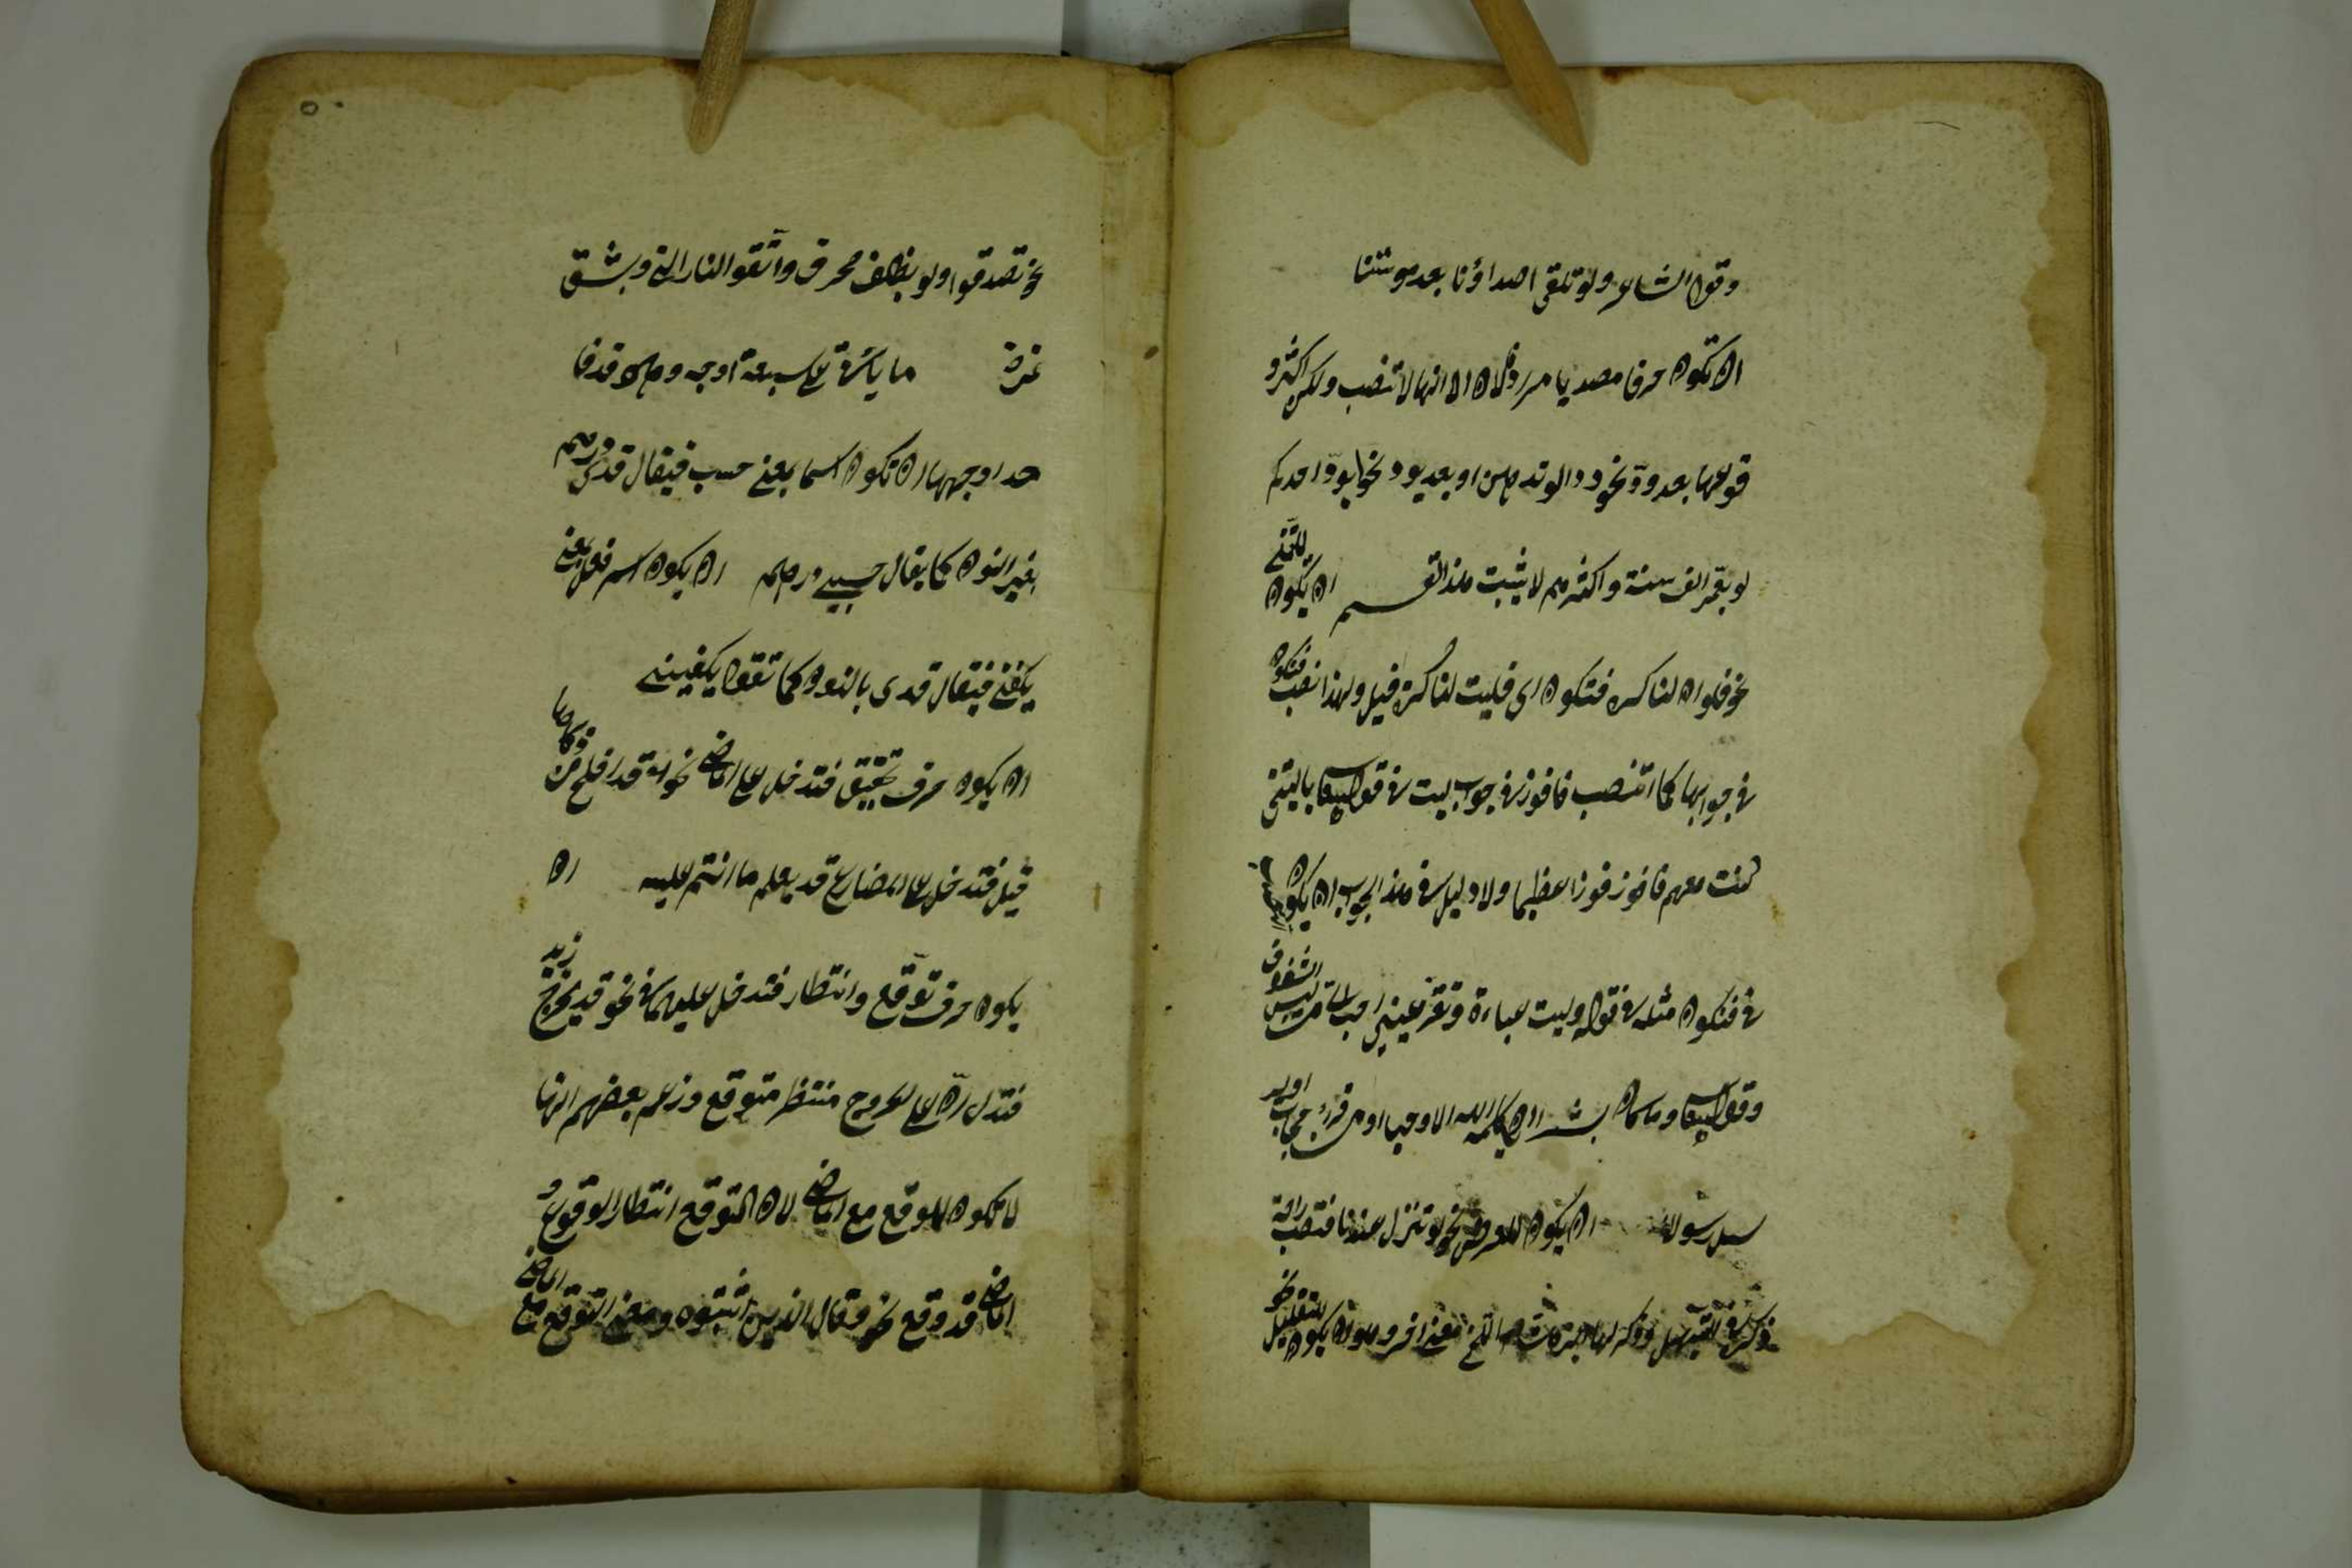 وقول الشاعر ولو تلتقي اصداؤنا بعد موتنا
ان تكون حرفا مصدريا مرادفا لان الا انها لا تنصب ولكن اكثر و
قوعها بعد ود نحو ودوا لو تدهن او بعد يود نحو يود احدكم
لو يعمر الف سنة واكثرهم لا يثبت هذا القسم ان يكون للتمني
نحو فلو ان لنا كرة فنكون اي فليت لنا كرة قيل ولهذا نصب فنكون
في جوابها كما انتصب فافوز في جواب ليت في قوله تعالى يا ليتني
كنت معهم فافوز فوزا عظيما ولا دليل في هذا لجواز ان يكون النصب
في فنكون مثله في قوله ولبس عباءة وتقر عيني احب الي من لبس الشفوف
وقوله تعالى وما كان لبشر ان يكلمه الله الا وحيا او من وراء حجاب او ير
سل رسولا ان يكون للعرض نحو لو تنزل عندنا فتصيب راحة
ذكره في التسهيل وذكر لها ابن هشام اللخمي معنى اخر وهو ان يكون للتقليل نحو
نحو تصدقوا ولو بظلف محرق واتقوا النار ولو بشق
تمرة ما ياتي على سبعة اوجه وهو قد فا
حد اوجهها ان تكون اسما بمعنى حسب فيقال قدي درهم
بغير النون كما يقال حسبي درهم ان يكون اسم فعل بمعنى
يكفي فيقال قدي بالنون كما تقول يكفيني
ان يكون حرف تحقيق فتدخل على الماضي نحو قد افلح من زكيها
قيل فتدخل على المضارع قد يعلم ما انتم عليه ان
يكون حرف توقع وانتظار فتدخل عليهما في نحو قد يخرج زيد
فتدل ان على الخروج منتظر متوقع وزعم بعضهم انها
لا تكون للتوقع مع الماضي لان التوقع انتظار الوقوع و
الماضي قد وقع نحو وقال الذين اثبتوه ومعنى التوقع مع الماضي